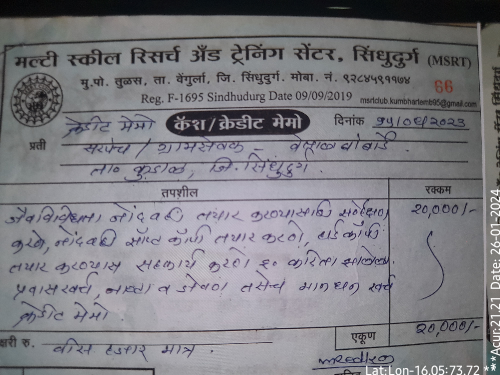 मल्टी स्कील रिसर्च अँड ट्रेनिंग सेंटर, सिंधुदुर्ग (MSRT)
मु.पो. तुळस, ता. वेंगुर्ला, जि. सिंधुदुर्ग. मोबा. नं. ९२८४५९११७४
Reg. F-1695 Sindhudurg Date 09/09/2019
66
msrtclub.kumbharlemb95@gmail.com
क्रेडीट मेमो
कॅश/क्रेडीट मेमो
दिनांक १५/०६/२०२३
प्रती
सरपंच / ग्रामसेवक -
ता. कुडाळ, जि. सिंधुदुर्ग
तपशील
रक्कम
जैवविविधता नोंदवही तयार करण्यासाठी सर्वेक्षण
20,000/-
करणे, नोंदवही सॉफ्ट कॉपी तयार करणे, हार्ड कॉपी
तयार करण्यास सहकार्य करणे इ. करिता झालेला
प्रवासखर्च, नाष्ता व जेवण तसेच मानधन खर्च
क्रेडीट मेमो
एकूण
20,000/-
क्षरी रु. वीस हजार मात्र.
Lat:Lon-16.05:73.72 ***Acur:21.21 Date: 26-01-2024